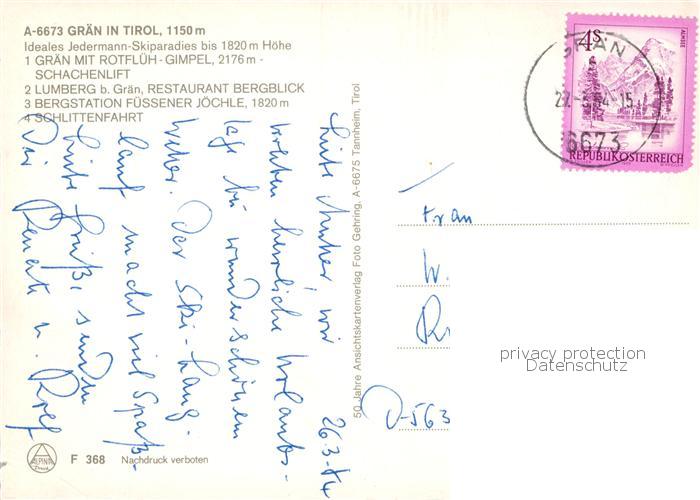 A-6673 GRÄN IN TIROL, 1150 m
Ideales Jedermann-Skiparadies bis 1820 m Höhe
1 GRÄN MIT ROTFLÜH - GIMPEL, 2176 m -
SCHACHENLIFT
2 LUMBERG b. Grän, RESTAURANT BERGBLICK
3 BERGSTATION FÜSSENER JÖCHLE, 1820 m
4 SCHLITTENFAHRT
26.3.84
Liebe Mutter, wir
erleben herrliche Urlaubs-
tage bei wunderschönem
Wetter. Der Ski-Lang-
lauf macht viel Spaß.
Liebe Grüße senden
Dir Renate u. Rolf
50 Jahre Ansichtskartenverlag Foto Gehring, A-6675 Tannheim, Tirol
4S
ALMSEE
REPUBLIK ÖSTERREICH
GRÄN
6673
Frau
W.
D-563
privacy protection
Datenschutz
ALPINA
F 368 Nachdruck verboten